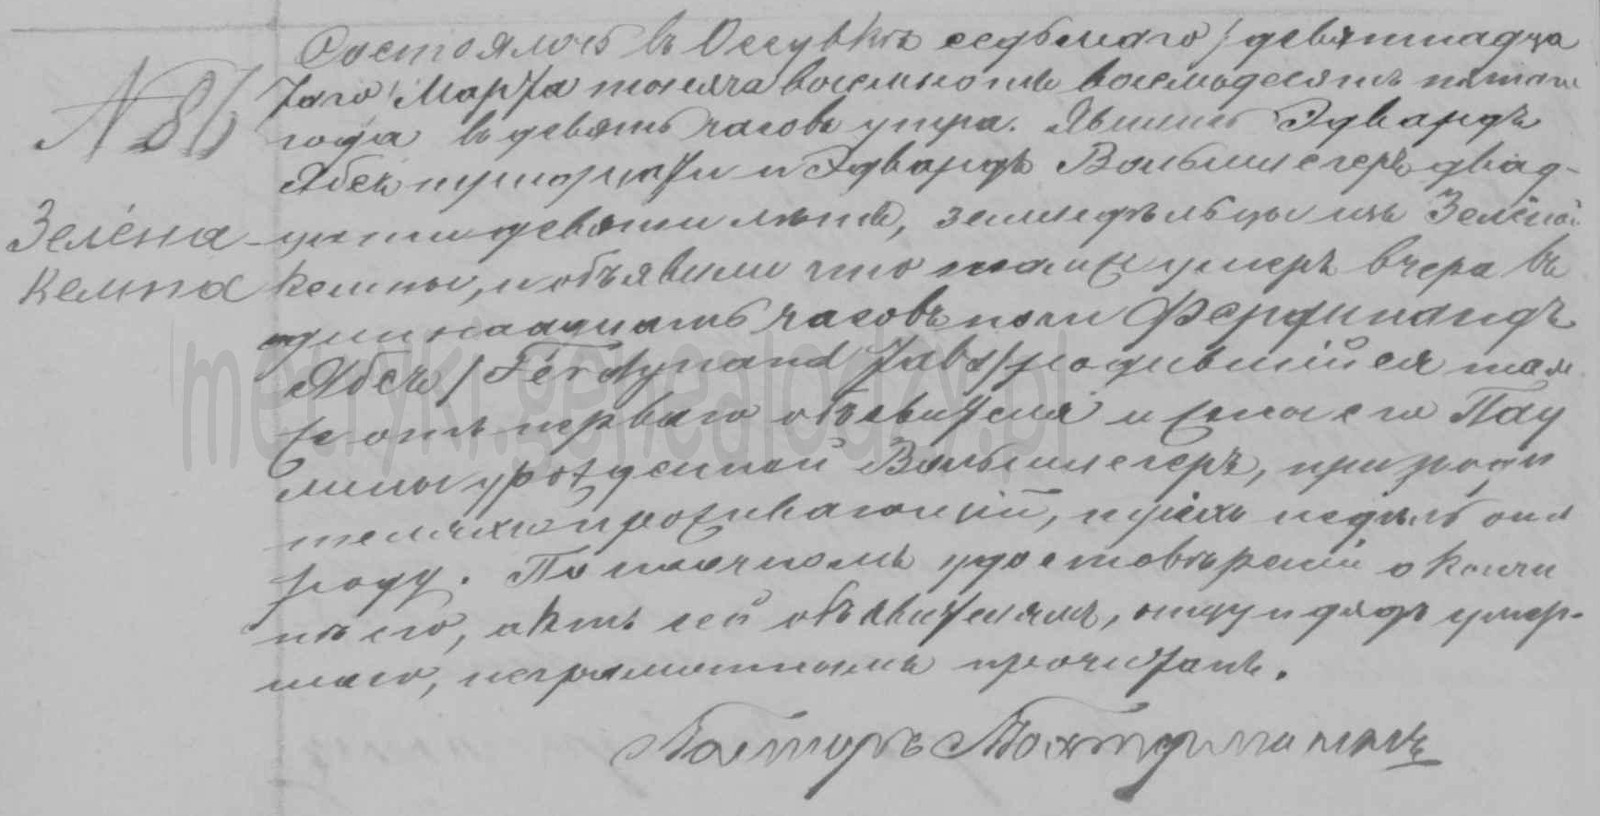 N 86
Зелёна
кемпа
Состоялось въ Оссувкѣ седьмаго / девятнадца
таго / Марта тысяча восемьсотъ восемьдесятъ пятаго
года въ девять часовъ утра. Явились Эдвардъ
Ябсъ тридцати и Эдвардъ Вольшлегеръ двад-
цати девяти лѣтъ, земледѣльцы изъ Зелёной
кемпы, и объявили что тамже умеръ вчера въ
одиннадцать часовъ ночи Фердинандъ
Ябсъ / Ferdynand Jabs / родившійся там
же отъ перваго объявителя и жены его Пау
лины урожденной Вольшлегеръ, при роди
теляхъ проживающій, трёхъ недѣль отъ
роду. По наочномъ удостовѣреніи о кончи
нѣ его, актъ сей объявителямъ, отцу и дядѣ умер-
шаго, неграмотнымъ прочитанъ.
Пасторъ
metryki.genealodzy.pl